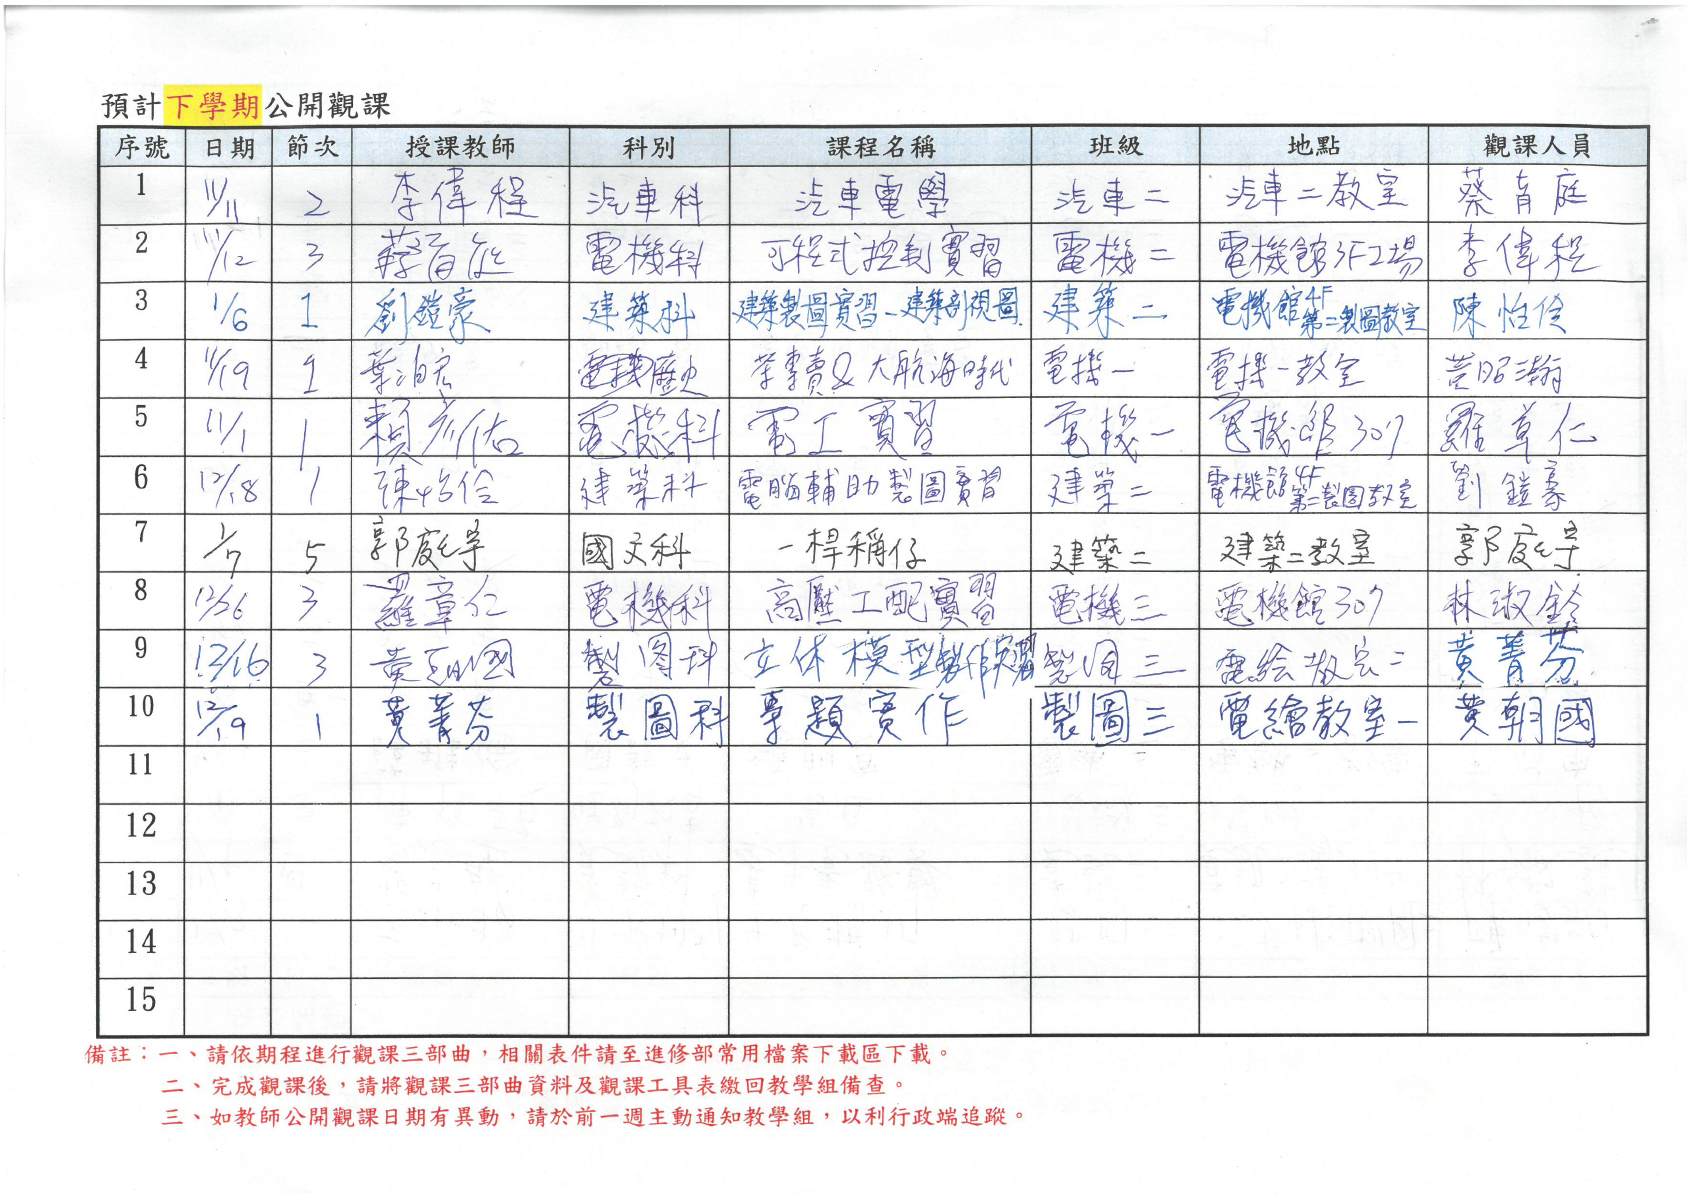 預計下學期公開觀課
序號 日期 節次 授課教師 科別 課程名稱 班級 地點 觀課人員
1 11/11 2 李偉程 汽車科 汽車電學 汽車二 汽車二教室 蔡育庭
2 11/12 3 蔡育庭 電機科 可程式控制實習 電機二 電機館3F工場 李偉程
3 1/6 1 劉鎧豪 建築科 建築製圖實習-建築剖視圖 建築二 電機館4F第二製圖教室 陳怡伶
4 11/19 1 葉 電機歷史 茶專賣&大航海時代 電機一 電機一教室 黃昭瀚
5 11/1 1 賴彥佑 電機科 電工實習 電機一 電機館307 羅章仁
6 12/18 1 陳怡伶 建築科 電腦輔助製圖實習 建築二 電機館4F第二製圖教室 劉鎧豪
7 1/7 5 郭庭宇 國文科 一桿稱仔 建築二 建築二教室 郭庭宇
8 12/26 3 羅章仁 電機科 高壓工配實習 電機三 電機館307 林淑鈴
9 12/16 3 黃朝國 製图科 立体模型製作實習 製図三 電绘教室二 黃菁芬
10 12/19 1 黃菁芬 製圖科 專題實作 製圖三 電繪教室一 黃朝國
11
12
13
14
15
備註：一、請依期程進行觀課三部曲，相關表件請至進修部常用檔案下載區下載。
二、完成觀課後，請將觀課三部曲資料及觀課工具表繳回教學組備查。
三、如教師公開觀課日期有異動，請於前一週主動通知教學組，以利行政端追蹤。